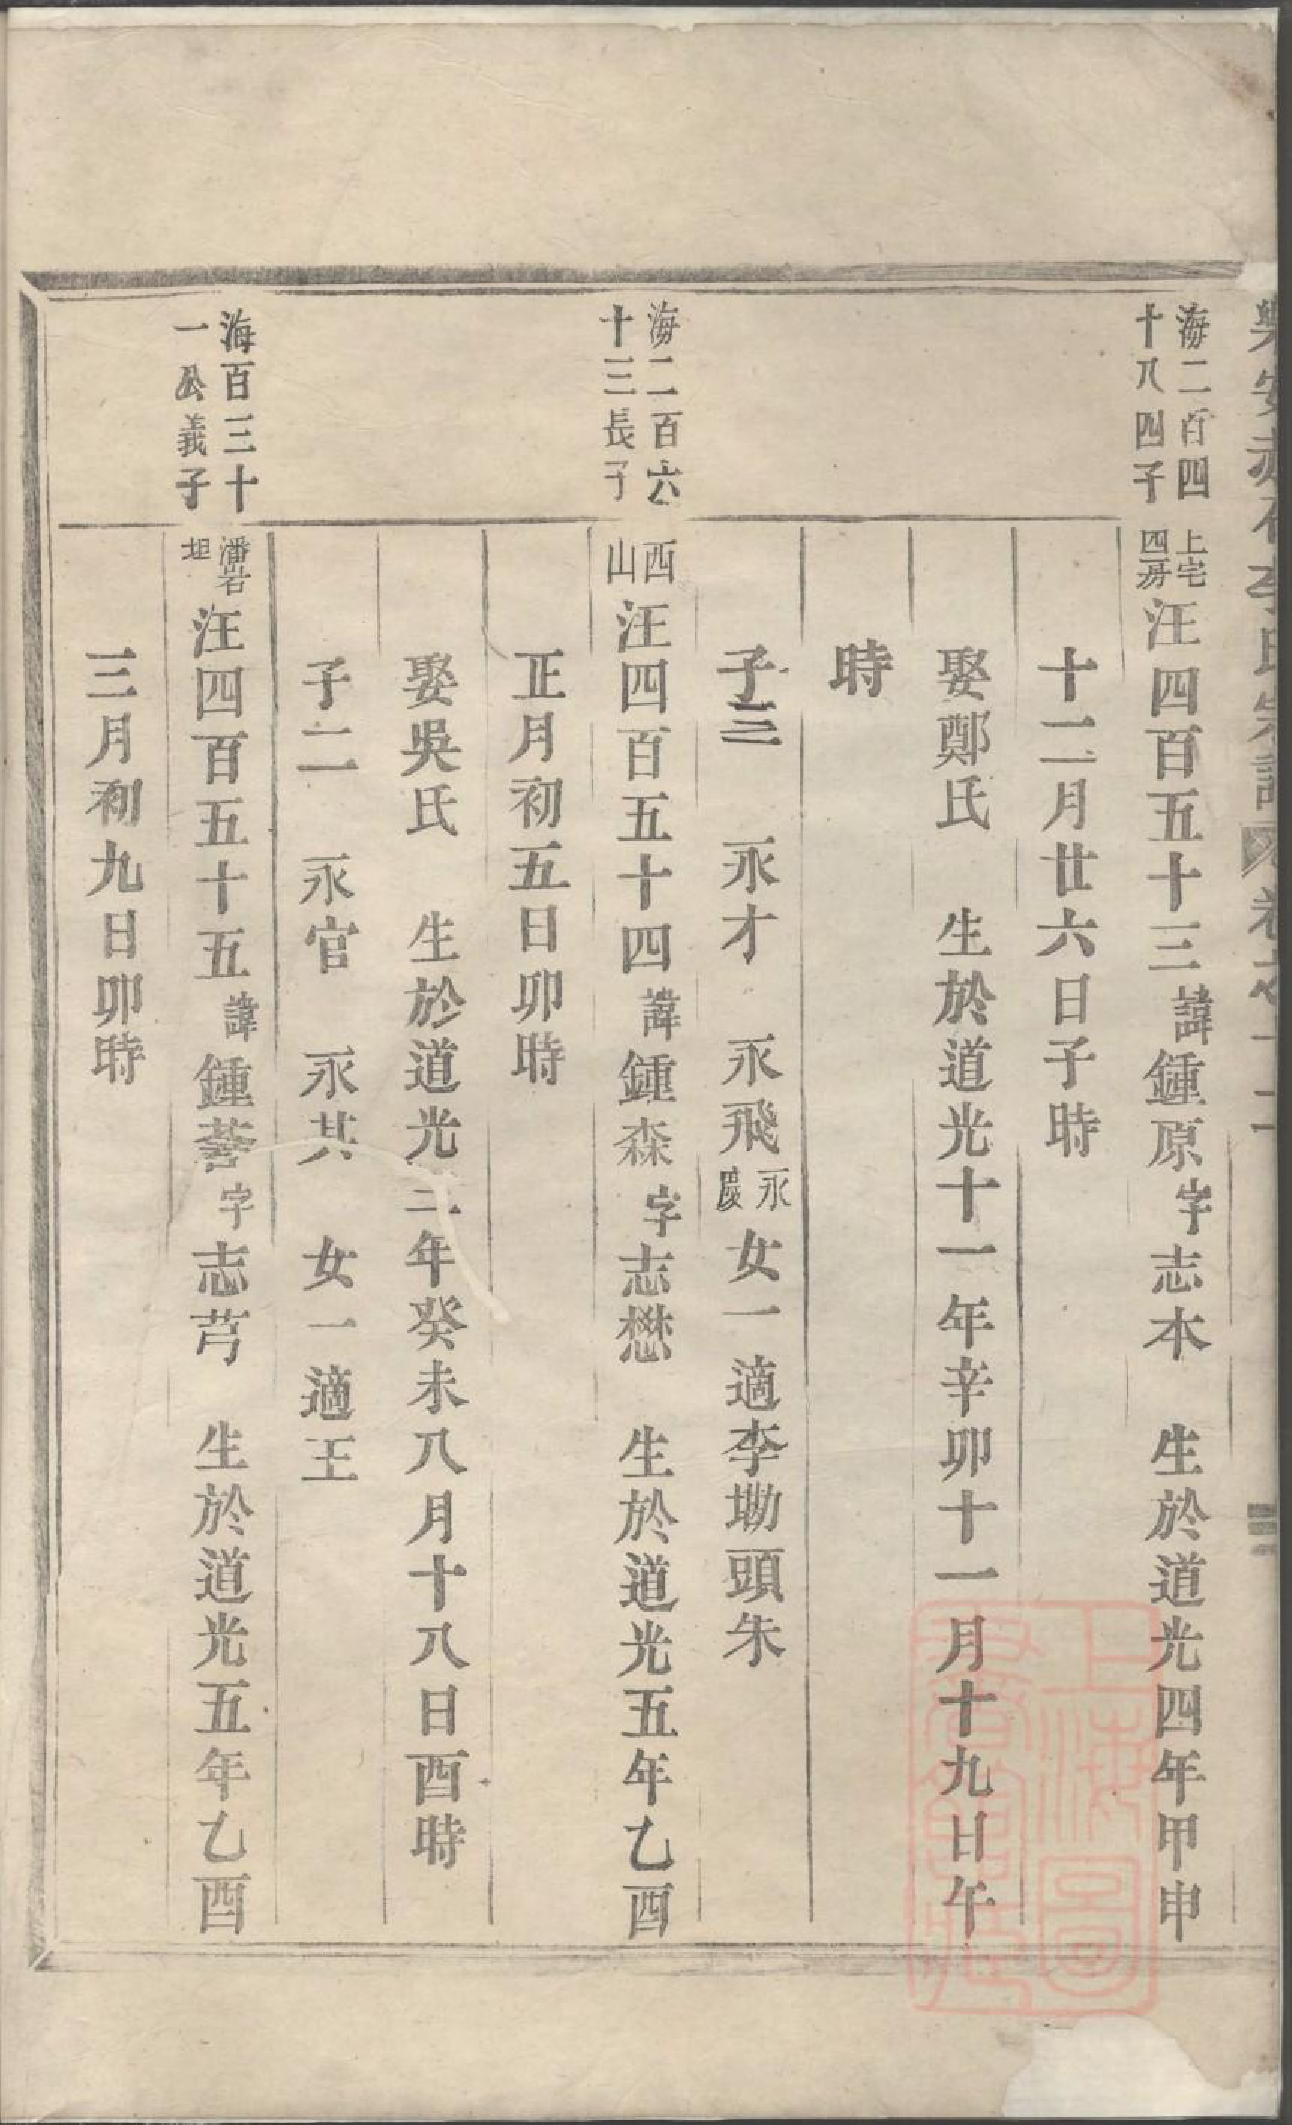 樂安赤石李氏宗譜 卷之十二
海二百四
十八四子
上宅
四房
汪四百五十三諱鍾原字志本 生於道光四年甲申
十二月廿六日子時
娶鄭氏 生於道光十一年辛卯十一月十九日午
時
子三 永才 永飛 永慶 女一適李墈頭朱
海二百六
十三長子
西
山
汪四百五十四諱鍾森字志懋 生於道光五年乙酉
正月初五日卯時
娶吳氏 生於道光三年癸未八月十八日酉時
子二 永官 永共 女一適王
海百三十
一公義子
潘岩
坦
汪四百五十五諱鍾薈字志芎 生於道光五年乙酉
三月初九日卯時
上海圖
書館藏